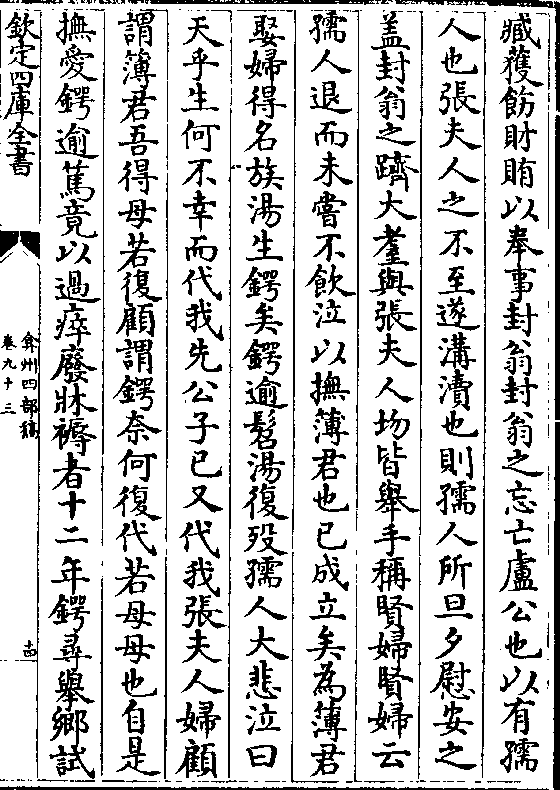 臧獲飭財賄以奉事封翁封翁之忘亡盧公也以有孺
人也張夫人之不至遂溝瀆也則孺人所旦夕慰安之
盖封翁之躋大耋與張夫人均皆舉手稱賢婦賢婦云
孺人退而未嘗不飲泣以撫簿君也已成立矣為簿君
娶婦得名族湯生鍔矣鍔逾髫湯復殁孺人大悲泣曰
天乎生何不幸而代我先公子已又代我張夫人婦顧
謂簿君吾得母若復顧謂鍔奈何復代若母母也自是
撫愛鍔逾篤竟以過瘁廢牀褥者十二年鍔尋舉鄉試
欽定四庫全書
弇州四部稿
卷九十三
十四